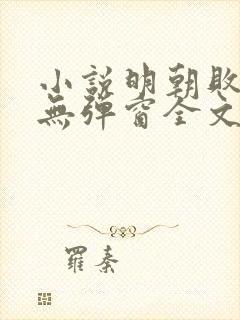 小說明朝敗
無彈窗全文
羅秦